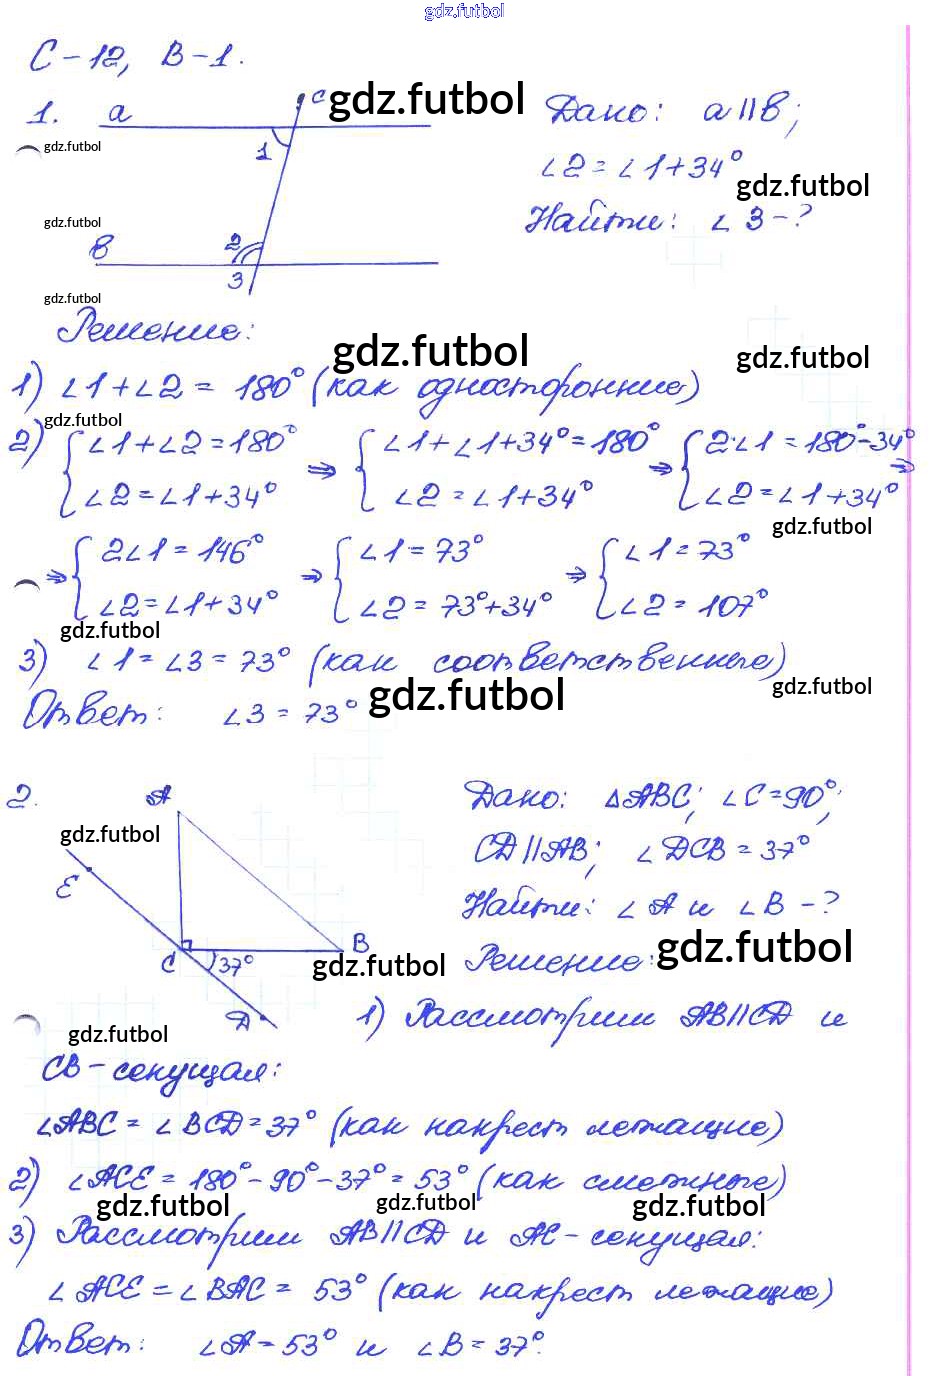 gdz.futbol
С-12, В-1.
1. a c gdz.futbol Дано: a||в;
gdz.futbol 1 ∠2=∠1+34°
gdz.futbol
gdz.futbol в 2 3 Найти: ∠3-?
gdz.futbol
Решение:
gdz.futbol gdz.futbol
1) ∠1+∠2=180° (как односторонние)
gdz.futbol
2) {∠1+∠2=180° ⇒ {∠1+∠1+34°=180° ⇒ {2·∠1=180°-34° ⇒
∠2=∠1+34° ∠2=∠1+34° ∠2=∠1+34°
gdz.futbol
⇒ {2∠1=146° ⇒ {∠1=73° ⇒ {∠1=73°
∠2=∠1+34° ∠2=73°+34° ∠2=107°
gdz.futbol
3) ∠1=∠3=73° (как соответственные)
gdz.futbol gdz.futbol
Ответ: ∠3=73°
2. A Дано: △ABC; ∠C=90°;
gdz.futbol
E CD||AB; ∠DCB=37°
Найти: ∠A и ∠B-?
C 37° B gdz.futbol Решение: gdz.futbol
D 1) Рассмотрим AB||CD и
gdz.futbol
CB-секущая:
∠ABC=∠BCD=37° (как накрест лежащие)
2) ∠ACE=180°-90°-37°=53° (как смежные)
gdz.futbol gdz.futbol gdz.futbol
3) Рассмотрим AB||CD и AC-секущая:
∠ACE=∠BAC=53° (как накрест лежащие)
Ответ: ∠A=53° и ∠B=37°.